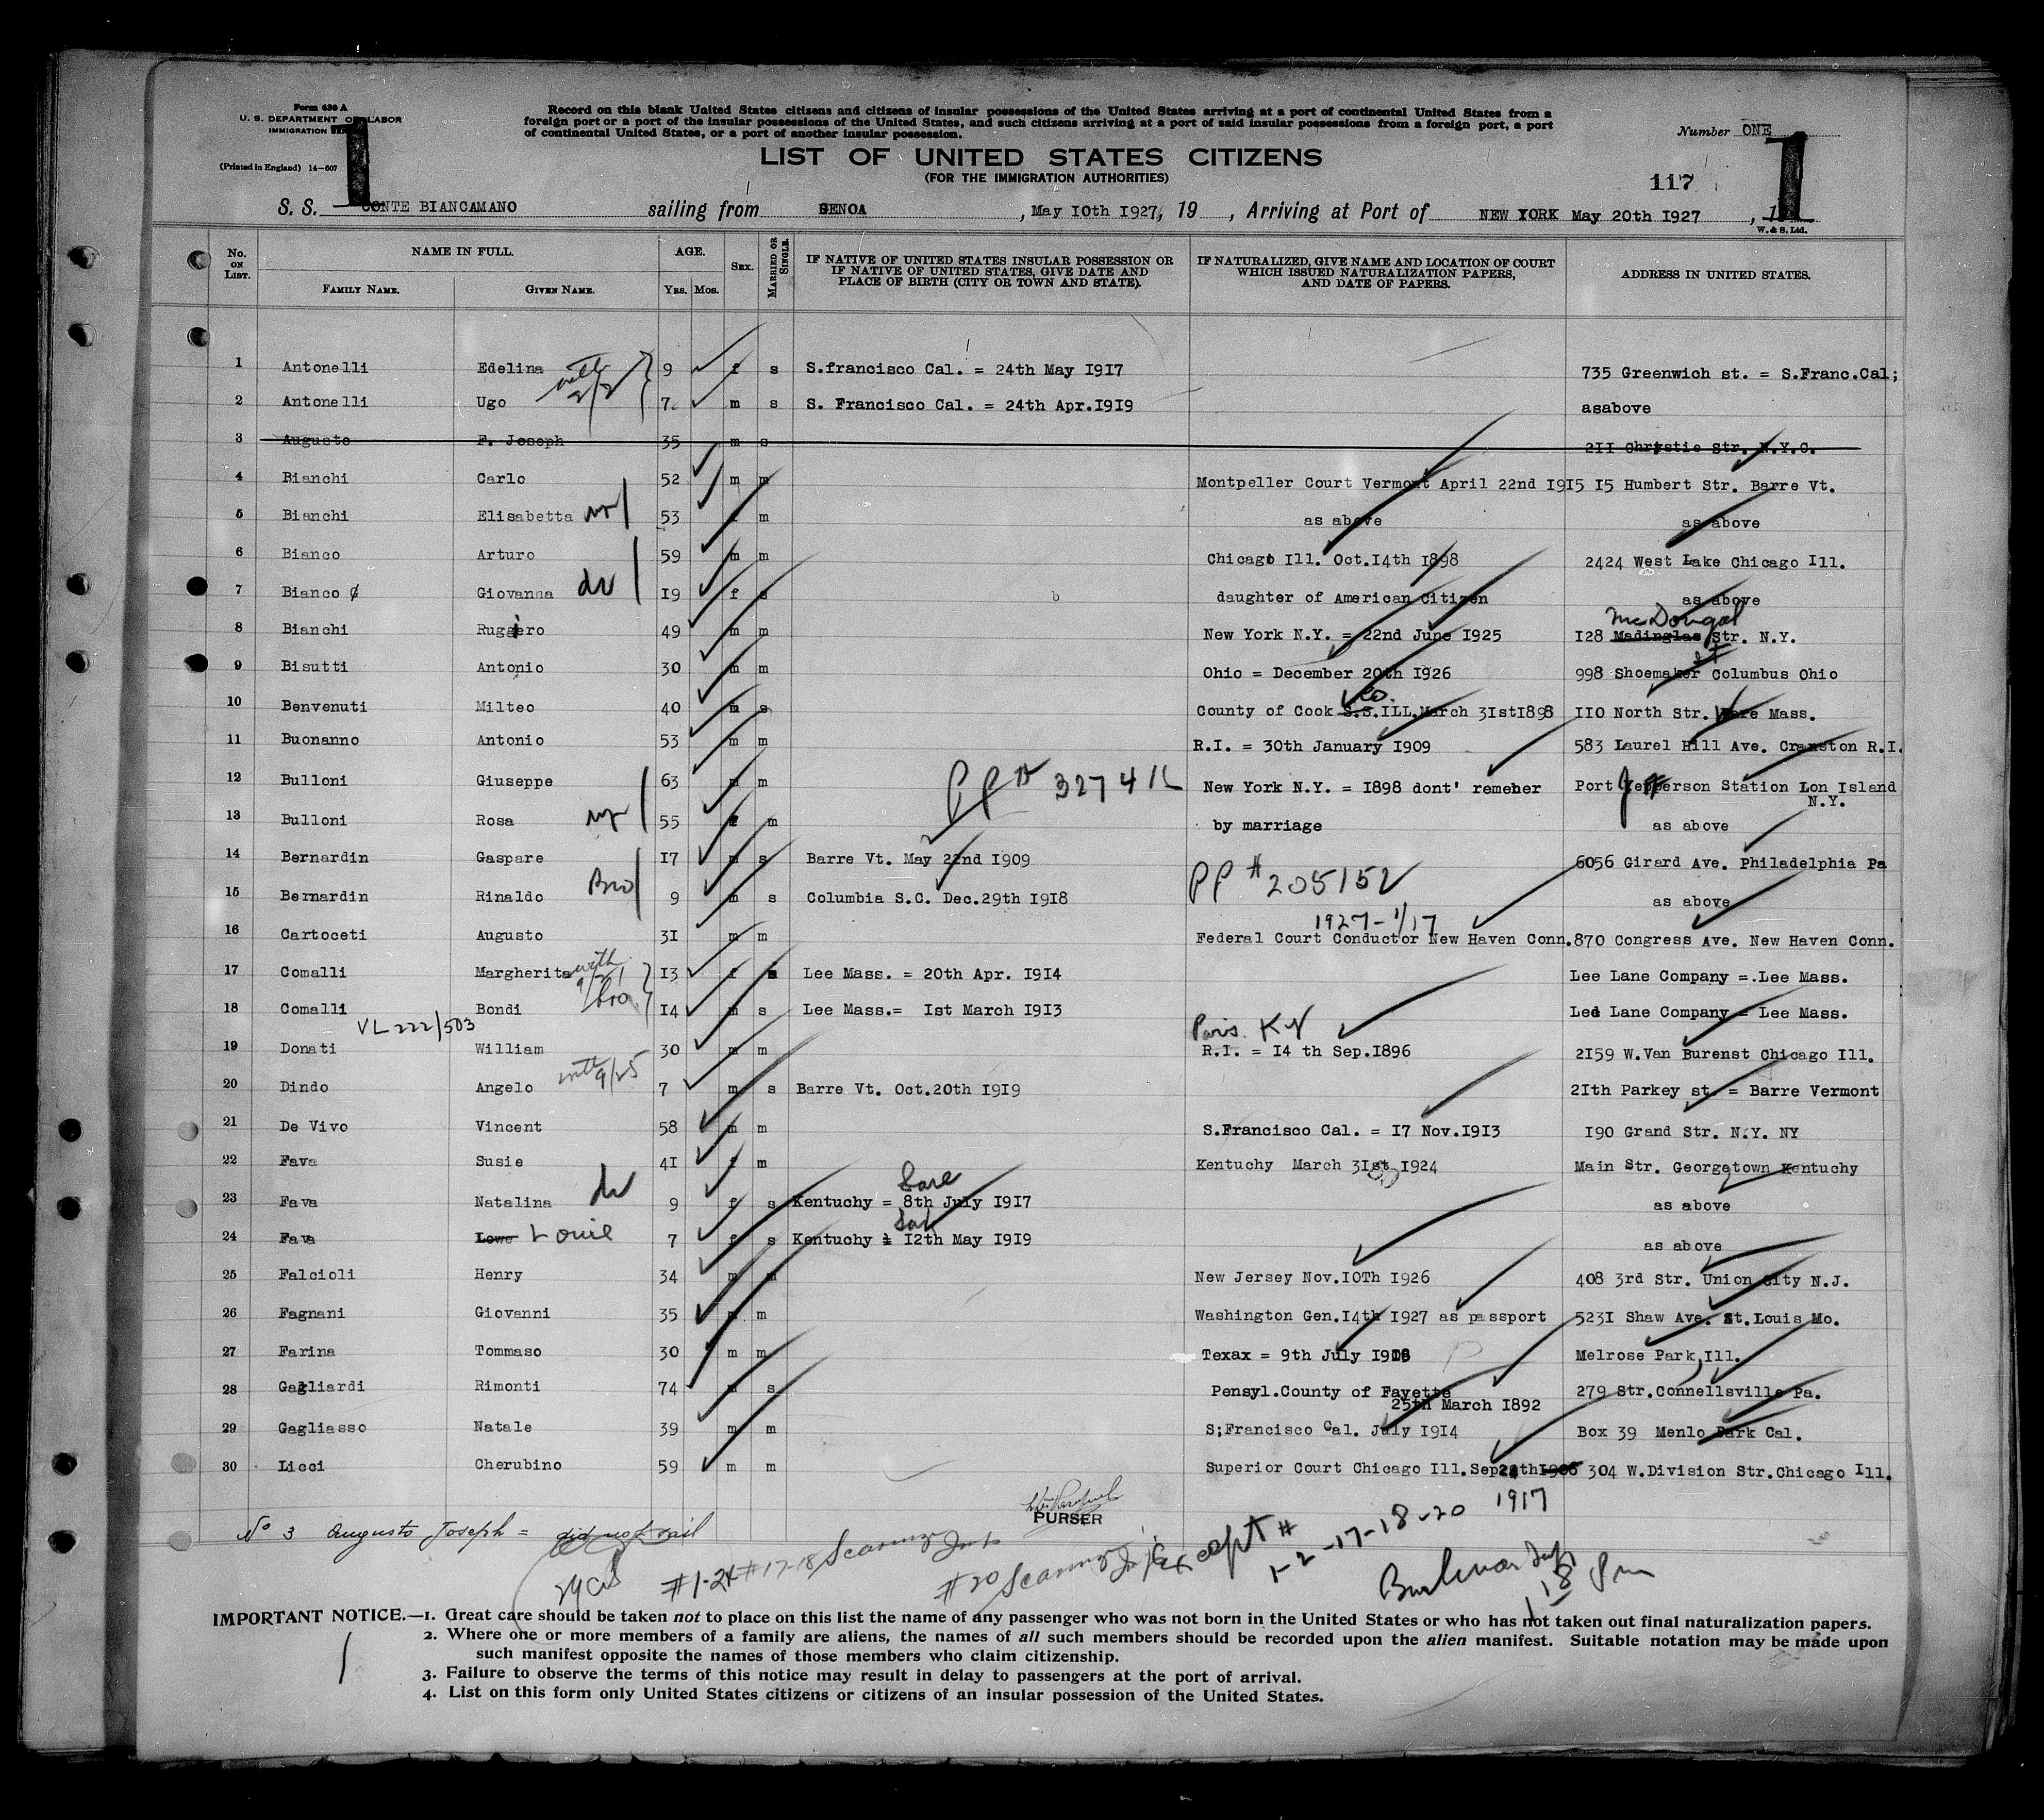 Form 630 A
U. S. DEPARTMENT OF LABOR
IMMIGRATION
(Printed in England) 14—607
1
Record on this blank United States citizens and citizens of insular possessions of the United States arriving at a port of continental United States from a
foreign port or a port of the insular possessions of the United States, and such citizens arriving at a port of said insular possessions from a foreign port, a port
of continental United States, or a port of another insular possession.
Number ONE
1
LIST OF UNITED STATES CITIZENS
(FOR THE IMMIGRATION AUTHORITIES)
117
S. S. CONTE BIANCAMANO sailing from GENOA, May 10th 1927, 19 , Arriving at Port of NEW YORK May 20th 1927, 1
W. & S. Ltd.
No. ON LIST. NAME IN FULL. AGE. SEX. MARRIED OR SINGLE. IF NATIVE OF UNITED STATES INSULAR POSSESSION OR IF NATIVE OF UNITED STATES, GIVE DATE AND PLACE OF BIRTH (CITY OR TOWN AND STATE). IF NATURALIZED, GIVE NAME AND LOCATION OF COURT WHICH ISSUED NATURALIZATION PAPERS, AND DATE OF PAPERS. ADDRESS IN UNITED STATES.
FAMILY NAME. GIVEN NAME. YRS. MOS.
1 Antonelli Edelina with 2/2 9 f s S.francisco Cal. = 24th May 1917 735 Greenwich st. = S.Franc.Cal;
2 Antonelli Ugo 7. m s S. Francisco Cal. = 24th Apr.1919 asabove
3 Augusto F. Joseph 35 m s 211 Chrystie Str. N.Y.C.
4 Bianchi Carlo 52 m m Montpeller Court Vermont April 22nd 1915 15 Humbert Str. Barre Vt.
5 Bianchi Elisabetta 53 f m as above as above
6 Bianco Arturo 59 m m Chicago Ill. Oct.14th 1898 2424 West Lake Chicago Ill.
7 Bianco Giovanna 19 f s daughter of American Citizen as above
McDougal
8 Bianchi Ruggero 49 m m New York N.Y. = 22nd June 1925 128 Str. N.Y.
9 Bisutti Antonio 30 m m Ohio = December 20th 1926 998 Shoemaker st Columbus Ohio
10 Benvenuti Milteo 40 m s County of Cook Co. S.S.ILL.March 31st1898 110 North Str. Ware Mass.
11 Buonanno Antonio 53 m m R.I. = 30th January 1909 583 Laurel Hill Ave. Cranston R.I.
12 Bulloni Giuseppe 63 m m PP# 32741 New York N.Y. = 1898 dont' remeber Port Jefferson Station Lon Island
N.Y.
13 Bulloni Rosa 55 f m by marriage as above
14 Bernardin Gaspare 17 m s Barre Vt. May 22nd 1909 6056 Girard Ave. Philadelphia Pa
15 Bernardin Rinaldo Bro 9 m s Columbia S.C. Dec.29th 1918 PP # 205152 as above
1927-1/17
16 Cartoceti Augusto 31 m m Federal Court Conductor New Haven Conn. 870 Congress Ave. New Haven Conn.
17 Comalli Margherita with 9/21 13 f s Lee Mass. = 20th Apr. 1914 Lee Lane Company =.Lee Mass.
18 Comalli Bondi bro 14 m s Lee Mass.= 1st March 1913 Lee Lane Company = Lee Mass.
VL 222/503
19 Donati William 30 m m R.I. = 14 th Sep.1896 2159 W.Van Burenst Chicago Ill.
20 Dindo Angelo with 9/25 7 m s Barre Vt. Oct.20th 1919 21th Parkey st. = Barre Vermont
21 De Vivo Vincent 58 m m S.Francisco Cal. = 17 Nov.1913 190 Grand Str. N.Y. NY
22 Fava Susie 41 f m Kentuchy March 31st 1924 Main Str. Georgetown Kentuchy
23 Fava Natalina 9 f s Kentuchy = 8th July 1917 as above
24 Fava Lowe Louie 7 f s Kentuchy = 12th May 1919 as above
25 Falcioli Henry 34 m m New Jersey Nov.10Th 1926 408 3rd Str. Union City N.J.
26 Fagnani Giovanni 35 m m Washington Gen.14th 1927 as passport 5231 Shaw Ave. St.Louis Mo.
27 Farina Tommaso 30 m m Texax = 9th July 1918 Melrose Park, Ill.
28 Gagliardi Rimonti 74 m s Pensyl.County of Fayette 279 Str.Connellsville Pa.
25th March 1892
29 Gagliasso Natale 39 m m S;Francisco Cal. July 1914 Box 39 Menlo Park Cal.
30 Licci Cherubino 59 m m Superior Court Chicago Ill.Sep 304 W.Division Str.Chicago Ill.
1917
PURSER
No 3 Augusto Joseph = did not sail
#1-2 #17-18
#20
Except # 1-2-17-18-20
IMPORTANT NOTICE.—1. Great care should be taken not to place on this list the name of any passenger who was not born in the United States or who has not taken out final naturalization papers.
2. Where one or more members of a family are aliens, the names of all such members should be recorded upon the alien manifest. Suitable notation may be made upon
such manifest opposite the names of those members who claim citizenship.
3. Failure to observe the terms of this notice may result in delay to passengers at the port of arrival.
4. List on this form only United States citizens or citizens of an insular possession of the United States.